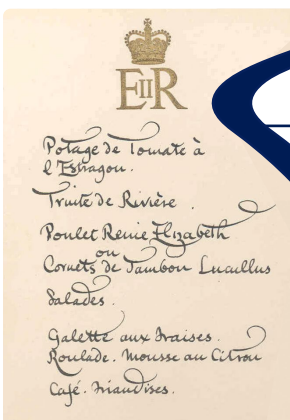 EIIR
Potage de Tomate à
l'Estragon.
Truite de Rivière.
Poulet Reine Elizabeth
ou
Cornets de Jambon Lucullus
Salades.
Galette aux Fraises.
Roulade. Mousse au Citron
Café. Friandises.